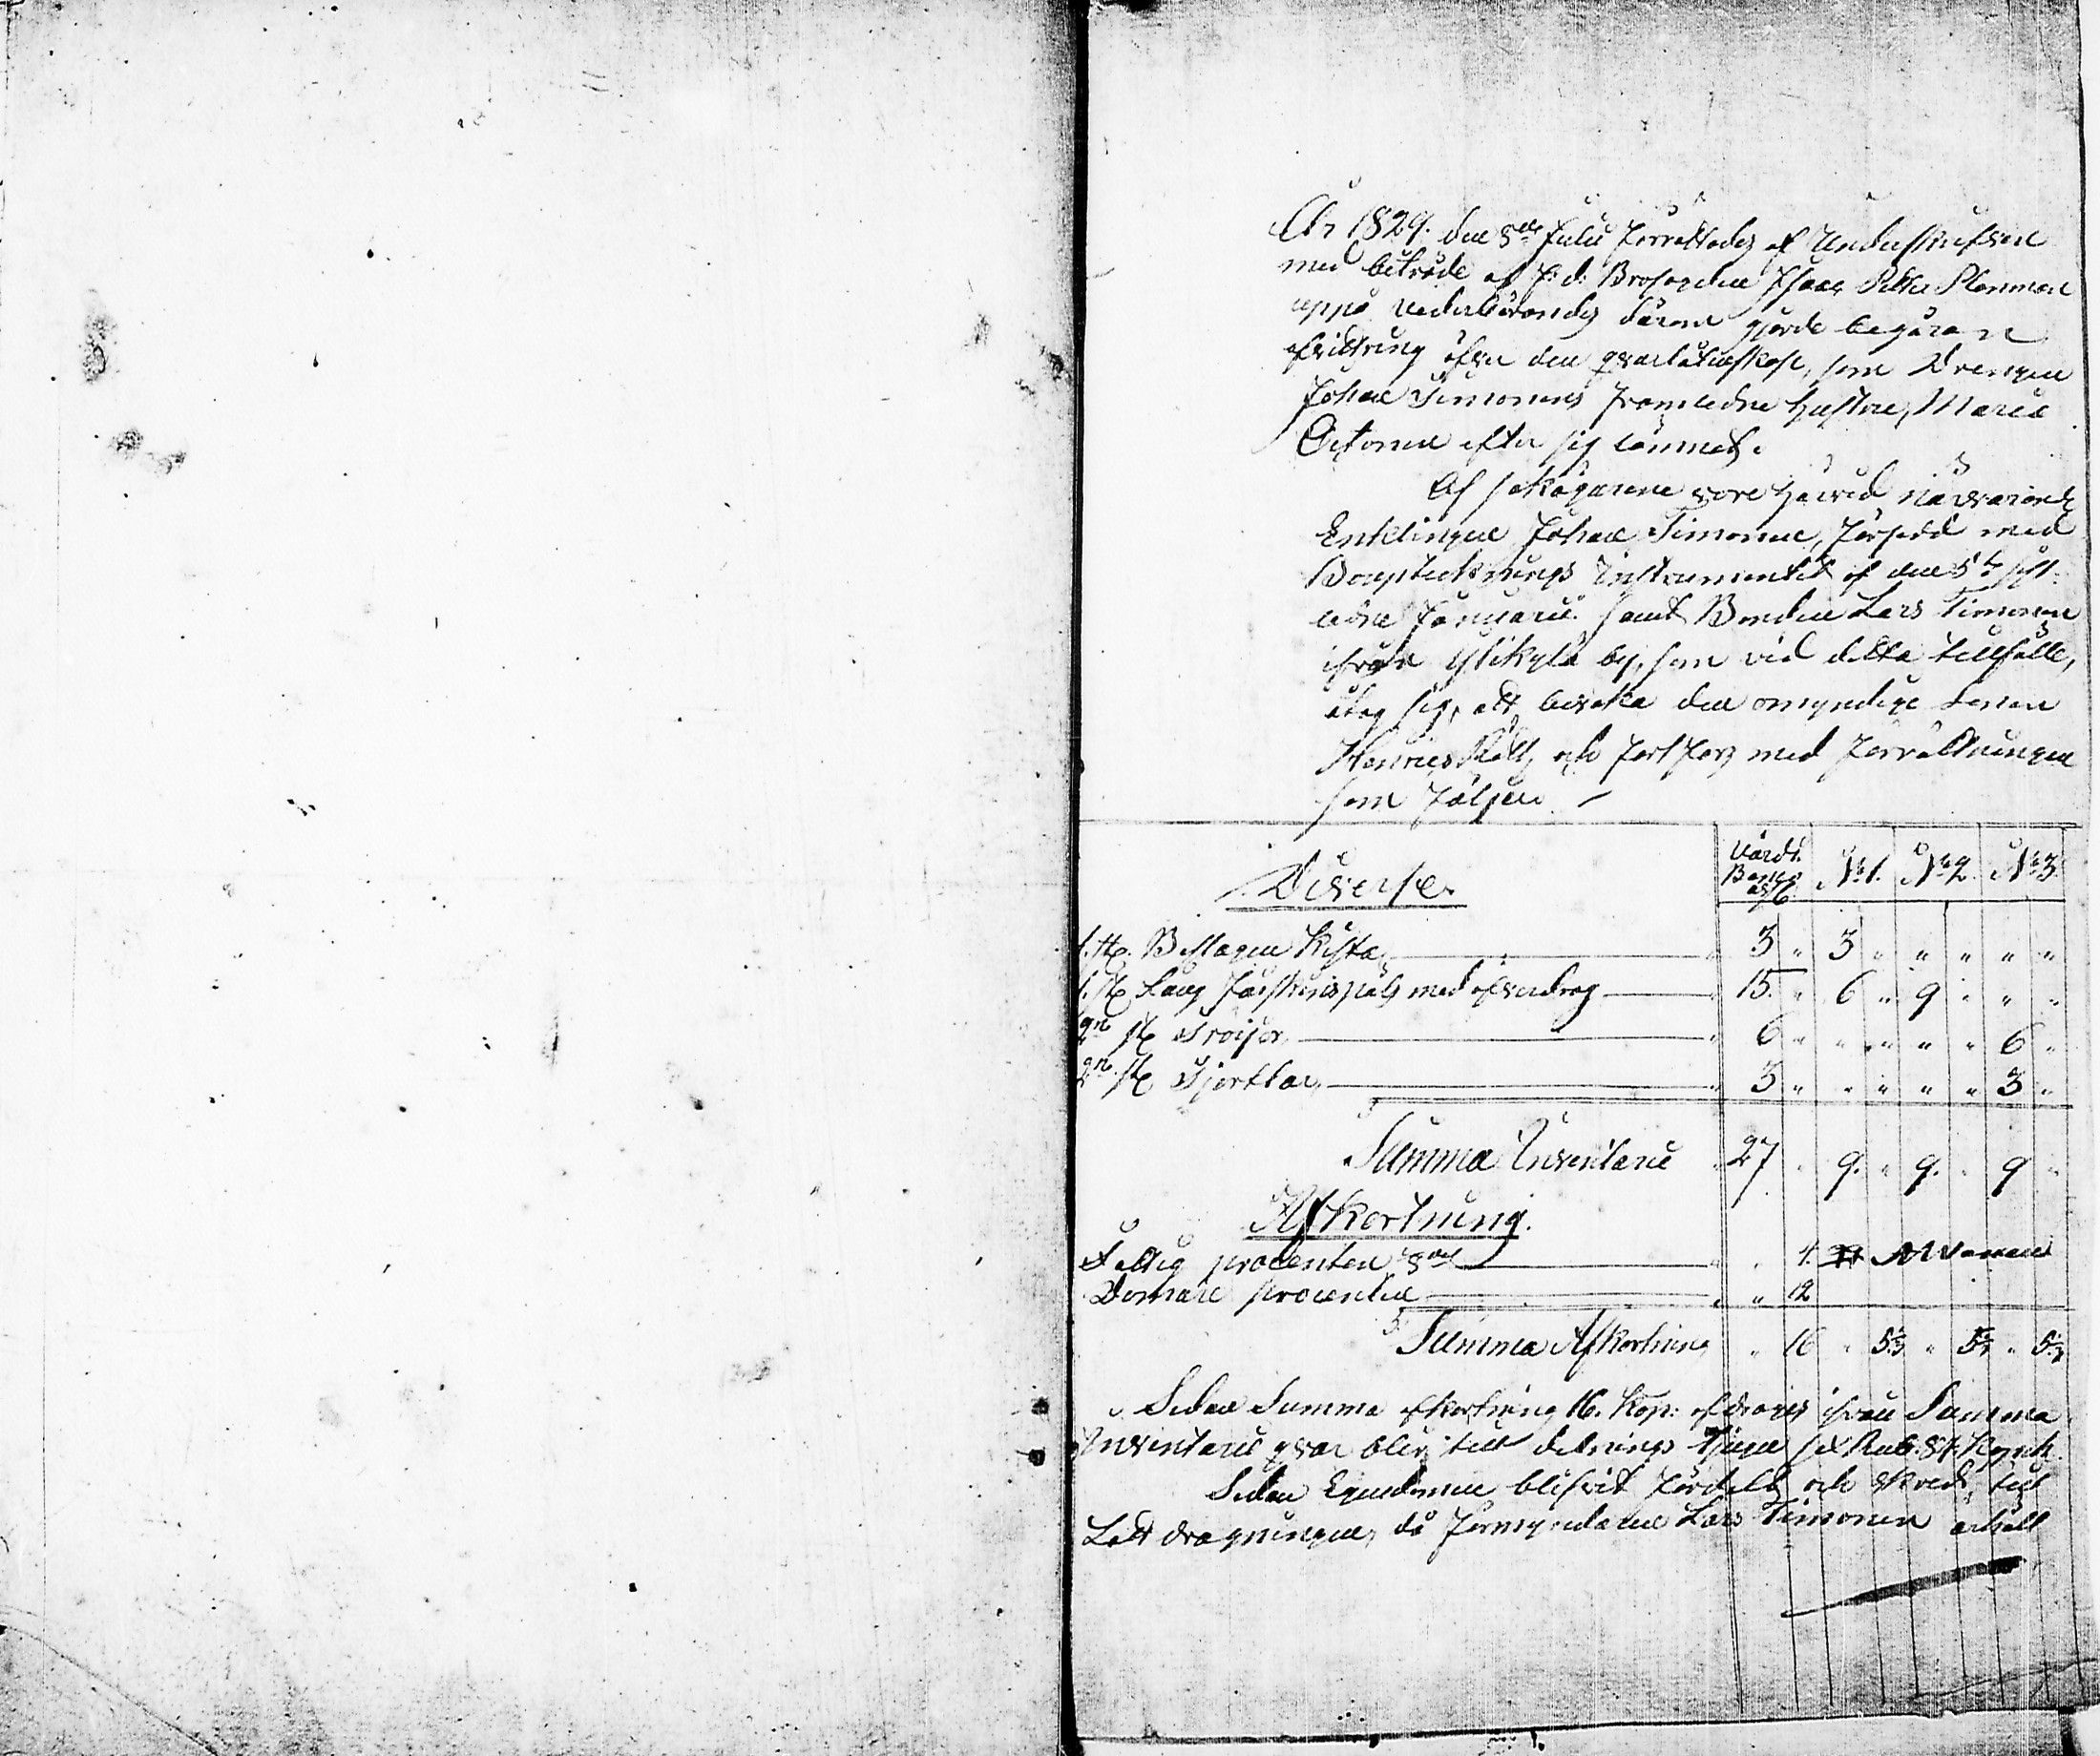 År 1829. den 8de Julii förrättades af Underskrefven
med biträde af f: d: Brofogden Isaac Petter Stenman
uppå Vederbörandes därom gjorde begäran
afvittring öfver den qvarlåtenskap, som Drengen
Johan Timonens framledne Hustru, Maria
efter sig lämnat.
Af sakägarene vore härvid närvarande
Enklingen Johan Timonen, försedd med
Bouptecknings Instrumentet af den 5te sist-
ledne Januarii samt Bonden Lars Timonen
ifrån Ylikylä by, som vid detta tillfälle,
åtog sig, att bevaka den omyndige Sonen
Henrics Rätt, och fortfors med förrättningen
som följer
Diverse. Värdt. Banco N:o 1. N:o 2. N:o 3.
1. st. Beslagen Kista 3 " 3 " " " " "
1. st. Lång Fårskinspäls med öfverdrag 15. " 6 " 9 " " "
2ne st. Tröijor 6 " " " " " 6 "
2ne st. Kjortlar 3 " " " " " 3 "
Summa Inventarii 27 " 9. " 9. " 9 "
Afkortning.
Fattig procenten " 4.
Domare procenten " 12
Summa Afkortning " 16 " 5⅓ " 5⅓ " 5⅓
Sedan Summa afkortning 16. Kop: afdrages ifrån Summa
Inventarii qvar blir till delnings Rub. 84. Kopek.
Sedan Egendomen blifvit fördelt, och skreds till
Lottdragningen, då förmyndaren Lars Timonen erhöll